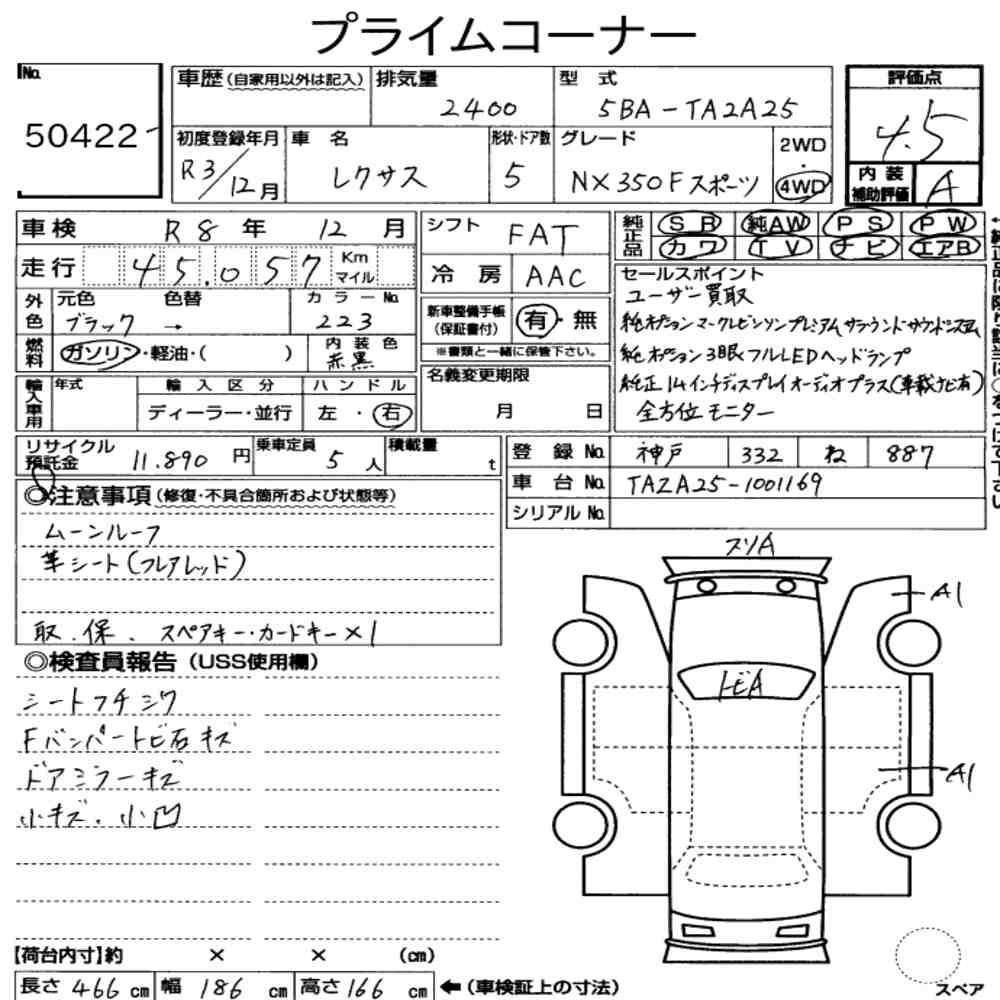 プライムコーナー
No. 50422
車歴 (自家用以外は記入) 排気量 2400 型式 5BA-TA2A25 評価点 4.5
初度登録年月 R3/12月 車名 レクサス 形状・ドア数 5 グレード NX350F スポーツ 2WD 4WD 内装補助評価 A
車検 R8年 12月 シフト FAT 純正品 SR 純AW PS PW
カワ TV ナビ エアB
走行 45.057 Km マイル 冷房 AAC
外色 元色 ブラック 色替 → カラーNo. 223
燃料 ガソリン・軽油・( ) 内装色 赤黒
新車整備手帳(保証書付) 有・無
※書類と一緒に保管下さい。
輸入車用 年式 輸入区分 ディーラー・並行 ハンドル 左・右
名義変更期限 月 日
セールスポイント
ユーザー買取
純オプションマークレビンソンプレミアムサラウンドサウンドシステム
純オプション3眼フルLEDヘッドランプ
純正14インチディスプレイオーディオプラス(車載ナビ有)
全方位モニター
リサイクル預託金 11.890円 乗車定員 5人 積載量 t
登録No. 神戸 332 ね 887
車台No. TA2A25-1001169
シリアルNo.
◎注意事項(修復・不具合箇所および状態等)
ムーンルーフ
革シート(フレアレッド)
取.保. スペアキー・カードキー×1
◎検査員報告(USS使用欄)
シートフチシワ
Fバンパートビ石キズ
ドアミラーキズ
小キズ.小凹
スリA
A1
トビA
A1
【荷台内寸】約 × × (cm)
長さ 466cm 幅 186cm 高さ 166cm ←(車検証上の寸法)
スペア